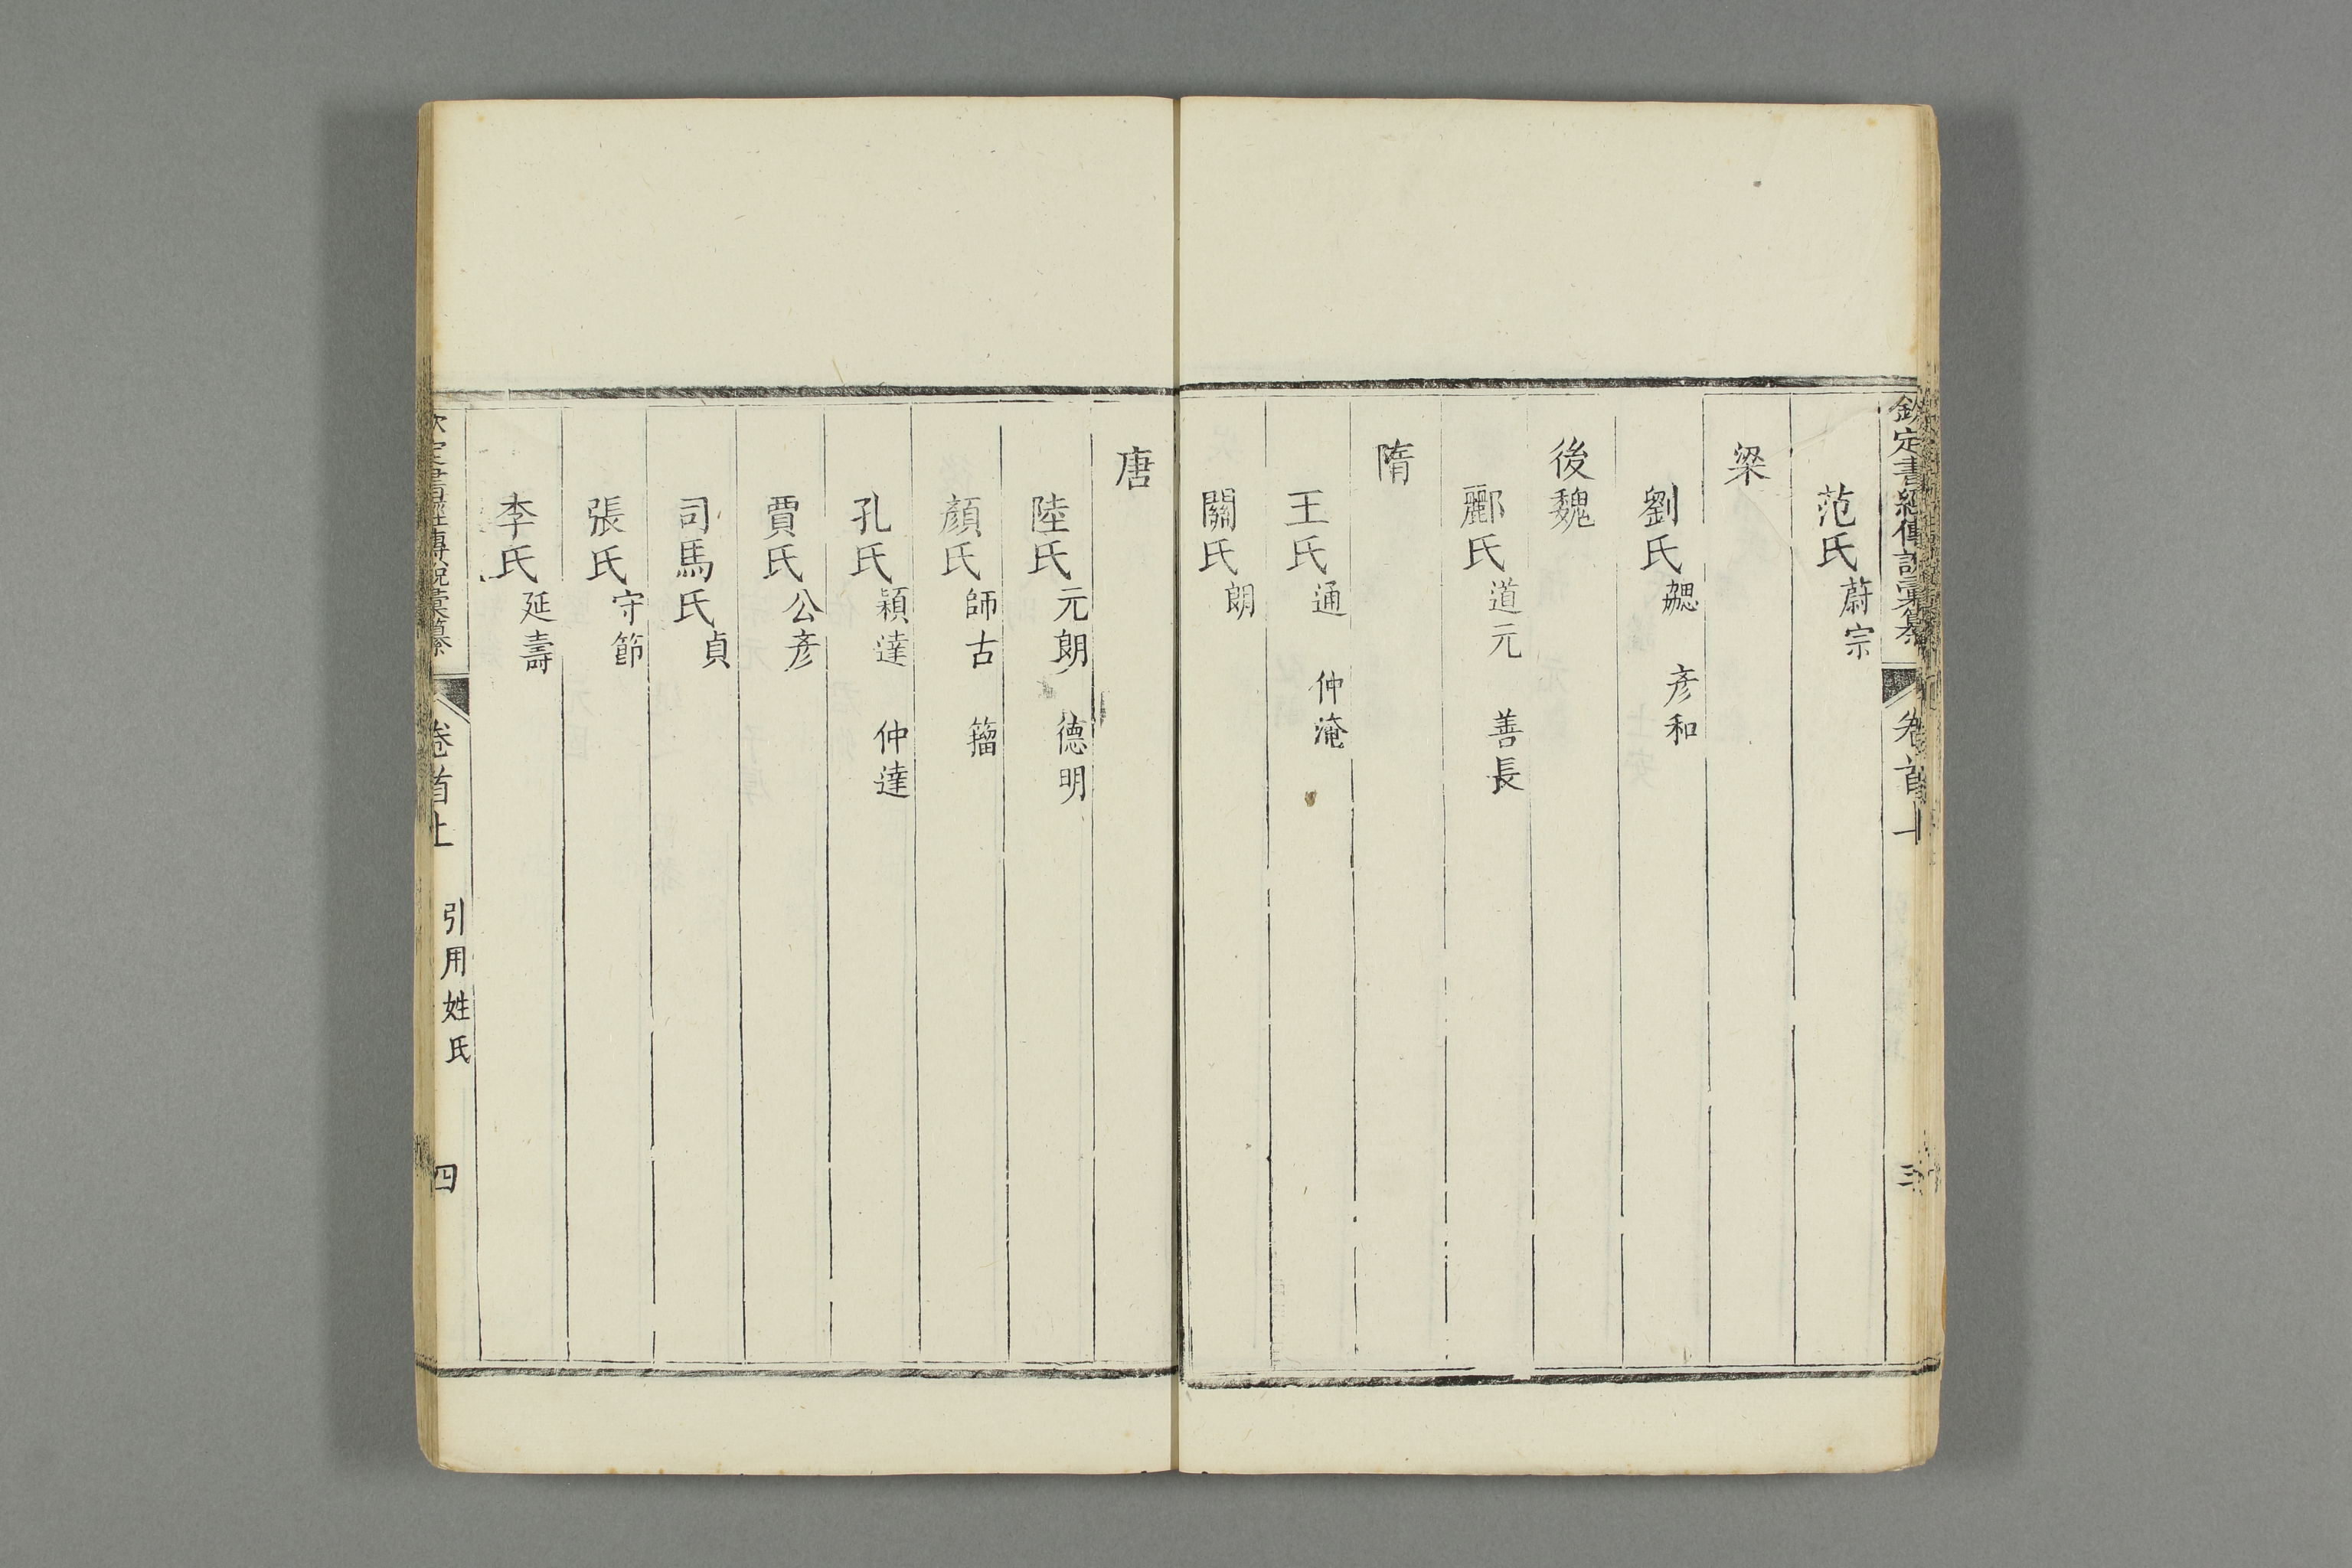 欽定書經傳說彙纂 卷首上 三
范氏蔚宗
梁
劉氏勰 彥和
後魏
酈氏道元 善長
隋
王氏通 仲淹
關氏朗
唐
陸氏元朗 德明
顏氏師古 籀
孔氏穎達 仲達
賈氏公彥
司馬氏貞
張氏守節
李氏延壽
欽定書經傳說彙纂 卷首上 引用姓氏 四